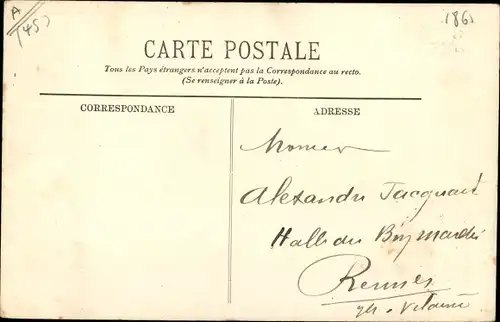 A
(45)
186
CARTE POSTALE
Tous les Pays étrangers n'acceptent pas la Correspondance au recto.
(Se renseigner à la Poste).
CORRESPONDANCE
ADRESSE
Alexandre Jacquart
Halle du
Rennes
Vilaine